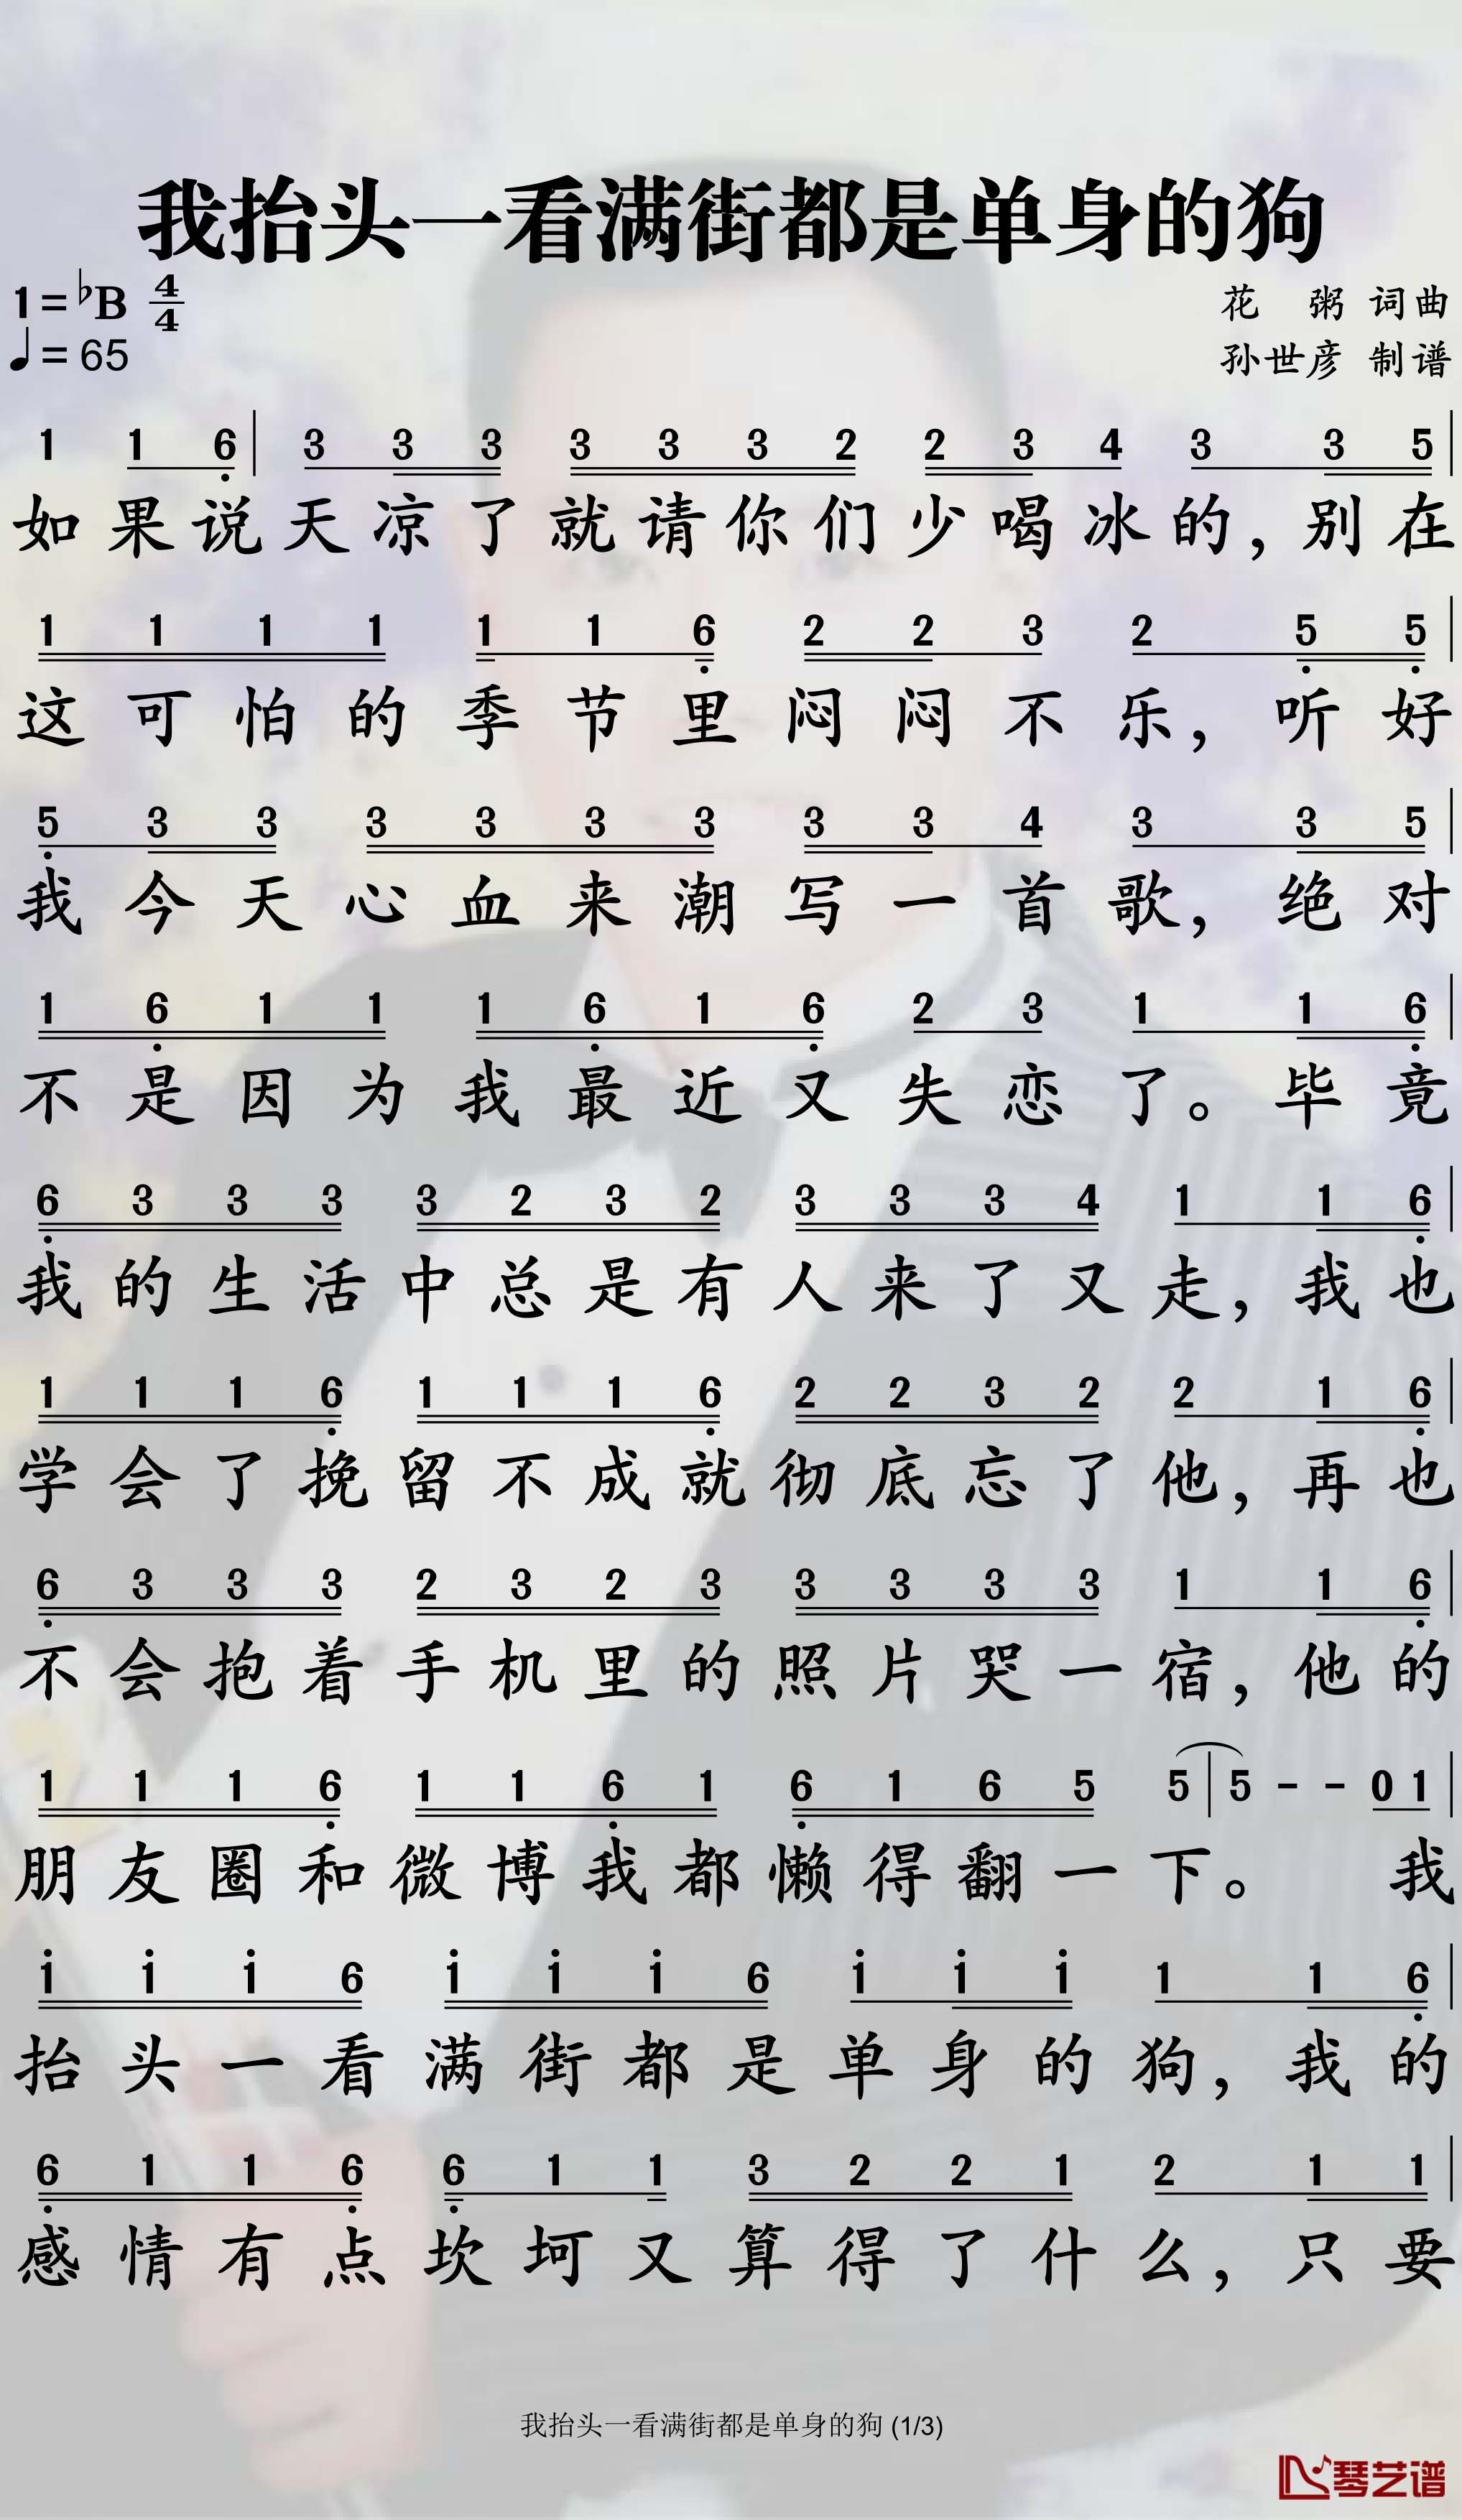 我抬头一看满街都是单身的狗
1=♭B 4/4
♩=65
花 粥 词曲
孙世彦 制谱
1 1 6̣ | 3 3 3 3 3 3 2 2 3 4 3 3 5 |
如果说天凉了就请你们少喝冰的，别在
1 1 1 1 1 1 6̣ 2 2 3 2 5̣ 5̣ |
这可怕的季节里闷闷不乐，听好
5̣ 3 3 3 3 3 3 3 3 4 3 3 5 |
我今天心血来潮写一首歌，绝对
1 6̣ 1 1 1 6̣ 1 6̣ 2 3 1 1 6̣ |
不是因为我最近又失恋了。毕竟
6̣ 3 3 3 3 2 3 2 3 3 3 4 1 1 6̣ |
我的生活中总是有人来了又走，我也
1 1 1 6̣ 1 1 1 6̣ 2 2 3 2 2 1 6̣ |
学会了挽留不成就彻底忘了他，再也
6̣ 3 3 3 2 3 2 3 3 3 3 3 1 1 6̣ |
不会抱着手机里的照片哭一宿，他的
1 1 1 6̣ 1 1 6̣ 1 6̣ 1 6 5 5 | 5 - - 0 1 |
朋友圈和微博我都懒得翻一下。 我
1̇ 1̇ 1̇ 6 1̇ 1̇ 1̇ 6 1̇ 1̇ 1̇ 1 1 6̣ |
抬头一看满街都是单身的狗，我的
6̣ 1 1 6̣ 6̣ 1 1 3 2 2 1 2 1 1 |
感情有点坎坷又算得了什么，只要
我抬头一看满街都是单身的狗 (1/3)
琴艺谱